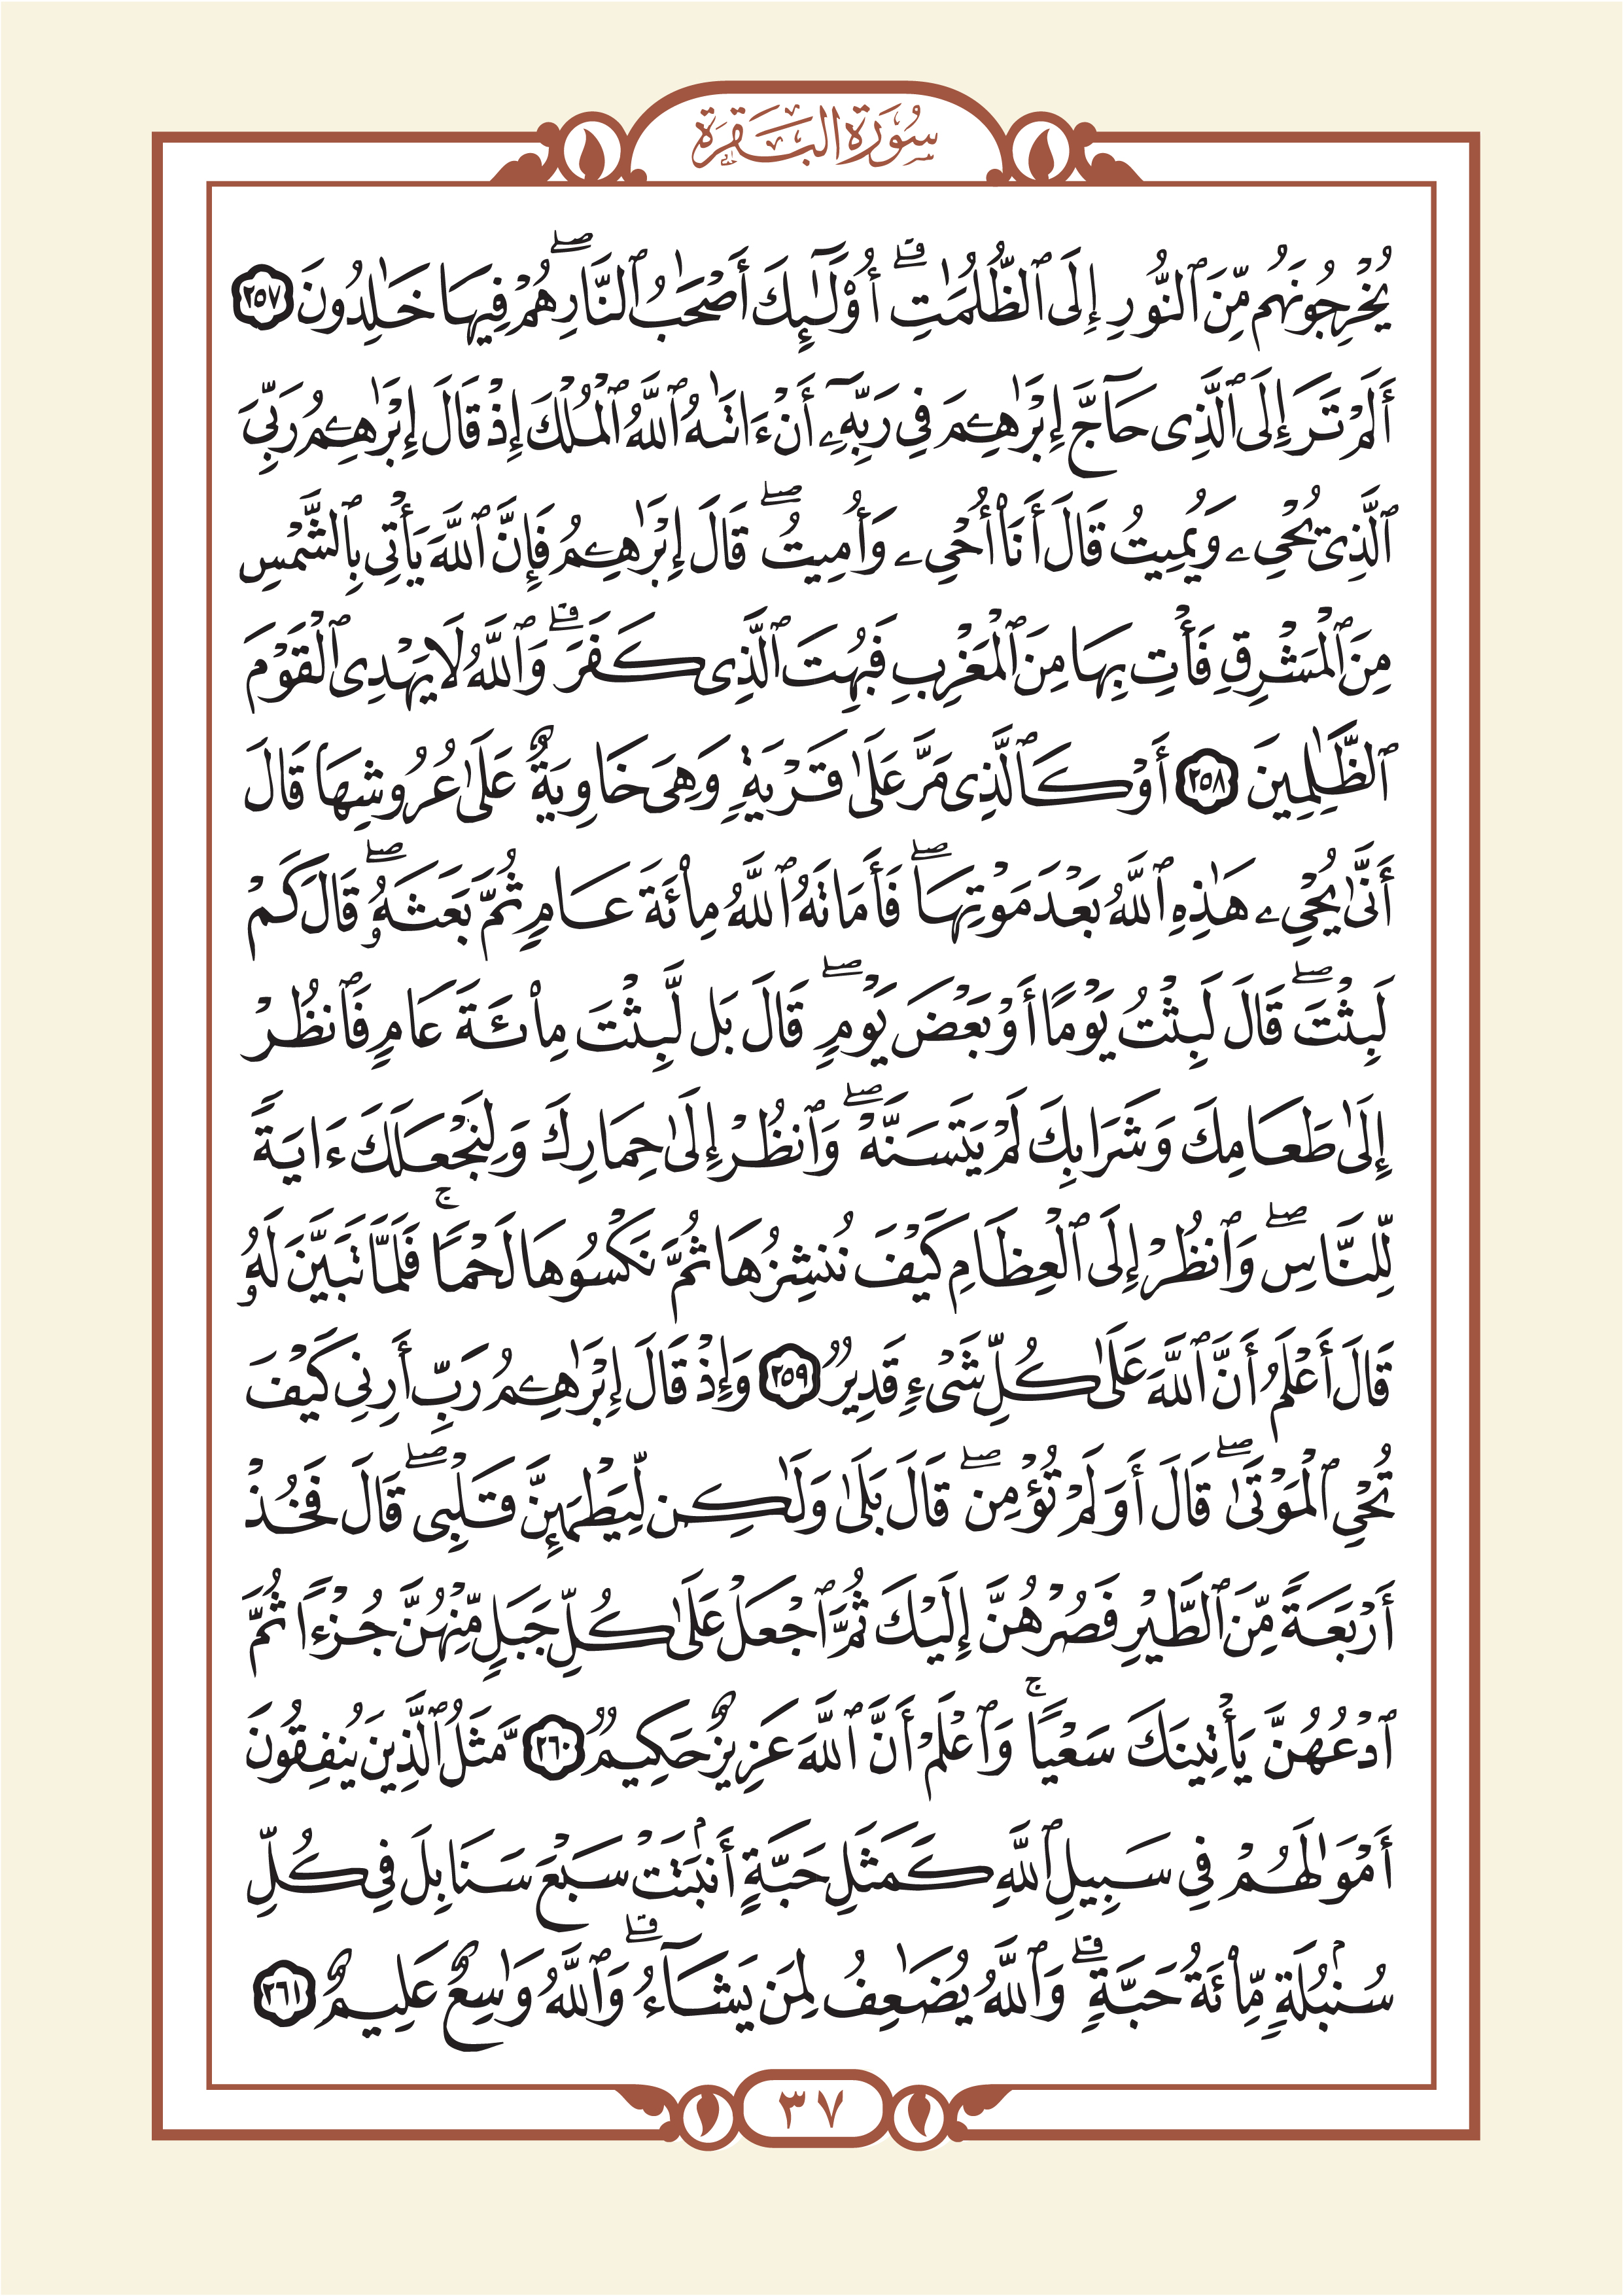 سُورَةُ البَقَرَةِ
يُخْرِجُونَهُم مِّنَ ٱلنُّورِ إِلَى ٱلظُّلُمَٰتِۗ أُو۟لَٰٓئِكَ أَصْحَٰبُ ٱلنَّارِۖ هُمْ فِيهَا خَٰلِدُونَ ٢٥٧
أَلَمْ تَرَ إِلَى ٱلَّذِى حَآجَّ إِبْرَٰهِـۧمَ فِى رَبِّهِۦٓ أَنْ ءَاتَىٰهُ ٱللَّهُ ٱلْمُلْكَ إِذْ قَالَ إِبْرَٰهِـۧمُ رَبِّىَ
ٱلَّذِى يُحْىِۦ وَيُمِيتُ قَالَ أَنَا۠ أُحْىِۦ وَأُمِيتُۖ قَالَ إِبْرَٰهِـۧمُ فَإِنَّ ٱللَّهَ يَأْتِى بِٱلشَّمْسِ
مِنَ ٱلْمَشْرِقِ فَأْتِ بِهَا مِنَ ٱلْمَغْرِبِ فَبُهِتَ ٱلَّذِى كَفَرَۗ وَٱللَّهُ لَا يَهْدِى ٱلْقَوْمَ
ٱلظَّٰلِمِينَ ٢٥٨ أَوْ كَٱلَّذِى مَرَّ عَلَىٰ قَرْيَةٍ وَهِىَ خَاوِيَةٌ عَلَىٰ عُرُوشِهَا قَالَ
أَنَّىٰ يُحْىِۦ هَٰذِهِ ٱللَّهُ بَعْدَ مَوْتِهَاۖ فَأَمَاتَهُ ٱللَّهُ مِا۟ئَةَ عَامٍ ثُمَّ بَعَثَهُۥۖ قَالَ كَمْ
لَبِثْتَۖ قَالَ لَبِثْتُ يَوْمًا أَوْ بَعْضَ يَوْمٍۖ قَالَ بَل لَّبِثْتَ مِا۟ئَةَ عَامٍ فَٱنظُرْ
إِلَىٰ طَعَامِكَ وَشَرَابِكَ لَمْ يَتَسَنَّهْۖ وَٱنظُرْ إِلَىٰ حِمَارِكَ وَلِنَجْعَلَكَ ءَايَةً
لِّلنَّاسِۖ وَٱنظُرْ إِلَى ٱلْعِظَامِ كَيْفَ نُنشِزُهَا ثُمَّ نَكْسُوهَا لَحْمًاۚ فَلَمَّا تَبَيَّنَ لَهُۥ
قَالَ أَعْلَمُ أَنَّ ٱللَّهَ عَلَىٰ كُلِّ شَىْءٍ قَدِيرٌ ٢٥٩ وَإِذْ قَالَ إِبْرَٰهِـۧمُ رَبِّ أَرِنِى كَيْفَ
تُحْىِ ٱلْمَوْتَىٰۖ قَالَ أَوَلَمْ تُؤْمِنۖ قَالَ بَلَىٰ وَلَٰكِن لِّيَطْمَئِنَّ قَلْبِىۖ قَالَ فَخُذْ
أَرْبَعَةً مِّنَ ٱلطَّيْرِ فَصُرْهُنَّ إِلَيْكَ ثُمَّ ٱجْعَلْ عَلَىٰ كُلِّ جَبَلٍ مِّنْهُنَّ جُزْءًا ثُمَّ
ٱدْعُهُنَّ يَأْتِينَكَ سَعْيًاۚ وَٱعْلَمْ أَنَّ ٱللَّهَ عَزِيزٌ حَكِيمٌ ٢٦٠ مَّثَلُ ٱلَّذِينَ يُنفِقُونَ
أَمْوَٰلَهُمْ فِى سَبِيلِ ٱللَّهِ كَمَثَلِ حَبَّةٍ أَنۢبَتَتْ سَبْعَ سَنَابِلَ فِى كُلِّ
سُنۢبُلَةٍ مِّا۟ئَةُ حَبَّةٍۗ وَٱللَّهُ يُضَٰعِفُ لِمَن يَشَآءُۗ وَٱللَّهُ وَٰسِعٌ عَلِيمٌ ٢٦١
٣٧